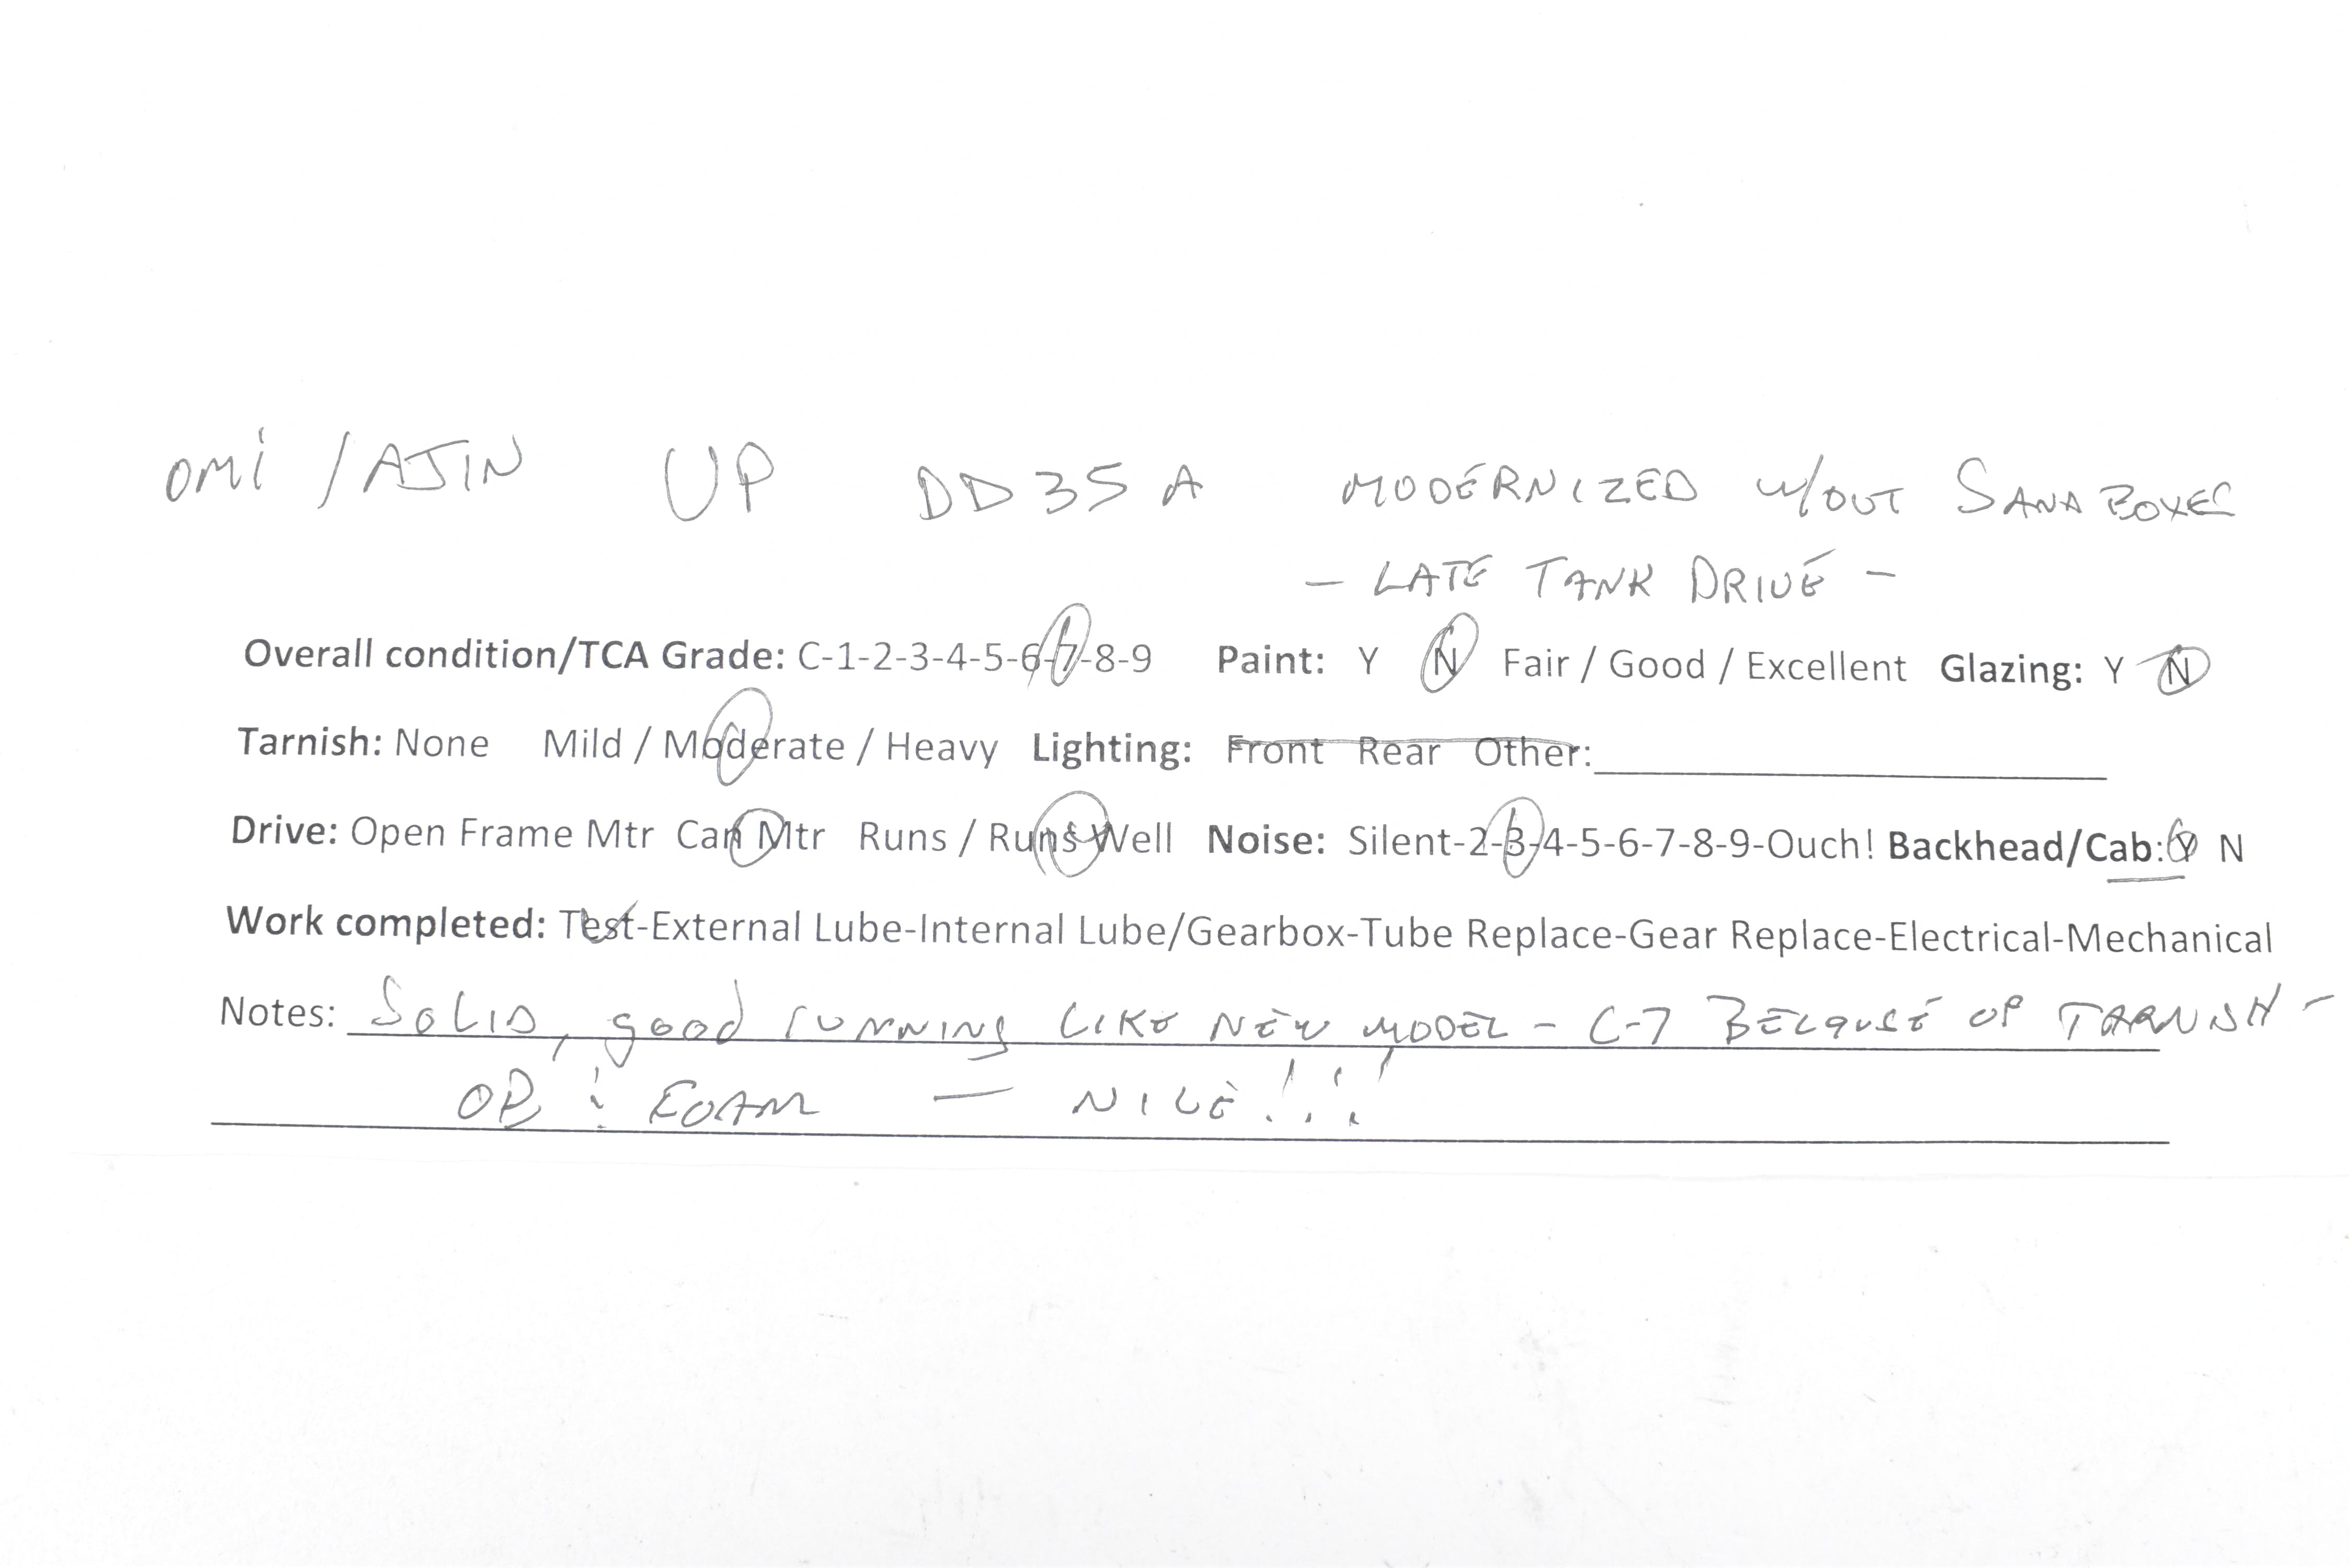 OMi / AJIN UP DD35A MODERNIZED w/OUT SANDBOXES
- LATE TANK DRIVE -
Overall condition/TCA Grade: C-1-2-3-4-5-6-7-8-9 Paint: Y N Fair / Good / Excellent Glazing: Y N
Tarnish: None Mild / Moderate / Heavy Lighting: Front Rear Other:
Drive: Open Frame Mtr Can Mtr Runs / Runs Well Noise: Silent-2-3-4-5-6-7-8-9-Ouch! Backhead/Cab: Y N
Work completed: Test-External Lube-Internal Lube/Gearbox-Tube Replace-Gear Replace-Electrical-Mechanical
Notes: SOLID, good running LIKE NEW MODEL - C-7 BECAUSE OF TARNISH -
OB & FOAM - NICE!!!